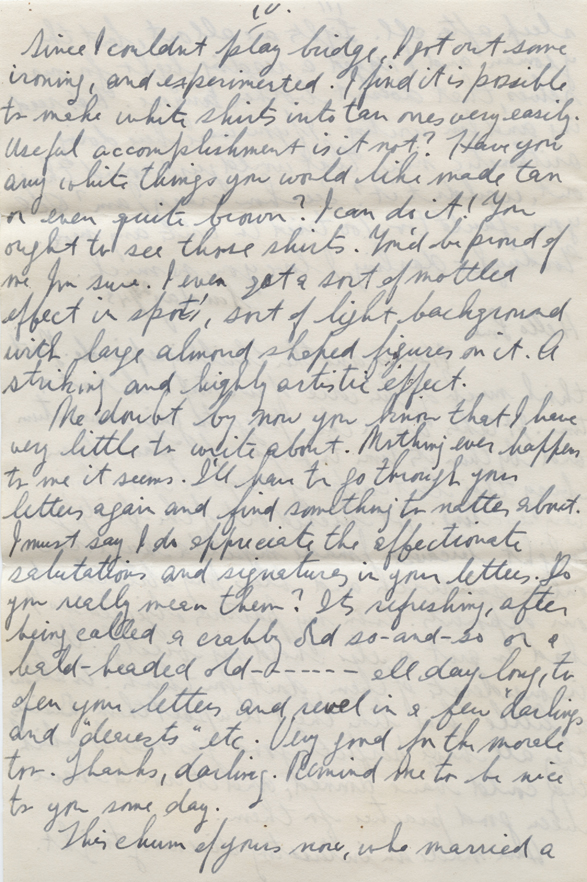 IV.
Since I couldnt play bridge, I got out some
ironing, and experimented. I find it is possible
to make white shirts into tan ones very easily.
Useful accomplishment is it not? Have you
any white things you would like made tan
or even quite brown? I can do it! You
ought to see those shirts. You'd be proud of
me Im sure. I even got a sort of mottled
effect in spots, sort of light background
with large almond shaped figures on it. A
striking and highly artistic effect.
No doubt by now you know that I have
very little to write about. Nothing ever happens
to me it seems. I'll have to go through your
letters again and find something to natter about.
I must say I do appreciate the affectionate
salutations and signatures in your letters. Do
you really mean them? Its refreshing, after
being called a crabby old so-and-so or a
bald-headed old ------- all day long, to
open your letters and revel in a few "darlings
and "dearests" etc. Very good for the morale
too. Thanks, darling. Remind me to be nice
to you some day.
This chum of yours now, who married a